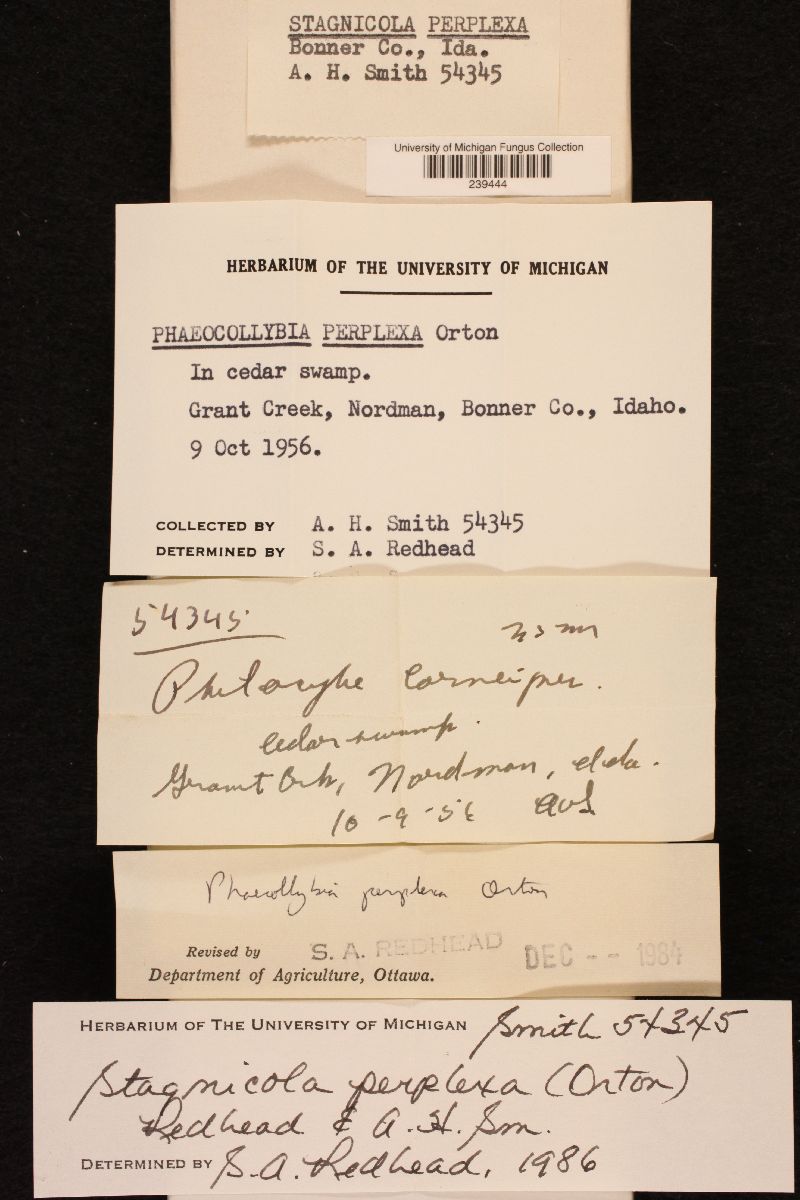 STAGNICOLA PERPLEXA
Bonner Co., Ida.
A. H. Smith 54345
University of Michigan Fungus Collection
239444
HERBARIUM OF THE UNIVERSITY OF MICHIGAN
PHAEOCOLLYBIA PERPLEXA Orton
In cedar swamp.
Grant Creek, Nordman, Bonner Co., Idaho.
9 Oct 1956.
COLLECTED BY A. H. Smith 54345
DETERMINED BY S. A. Redhead
54345
cedar swamp.
Grant Crk, Nordman, Ida.
10-9-56
Phaeocollybia perplexa Orton
Revised by S. A. REDHEAD DEC -- 1984
Department of Agriculture, Ottawa.
HERBARIUM OF THE UNIVERSITY OF MICHIGAN Smith 54345
Stagnicola perplexa (Orton)
Redhead & A. H. Sm.
DETERMINED BY S. A. Redhead, 1986